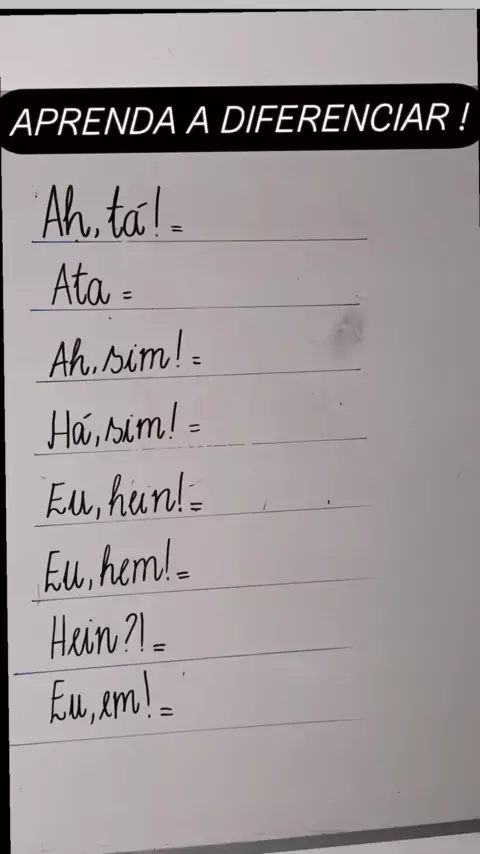 APRENDA A DIFERENCIAR !
Ah, tá! =
Ata =
Ah, sim! =
Há, sim! =
Eu, hein! =
Eu, hem! =
Hein?! =
Eu, em! =